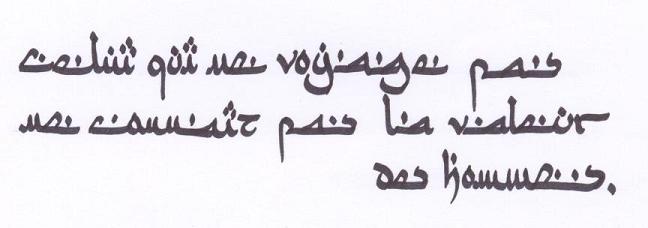 celui qui ne voyage pas
ne connaît pas la valeur
des hommes.